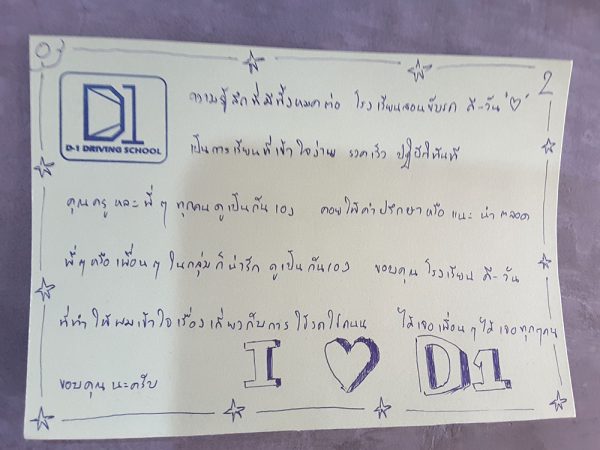 03
2
D1
D-1 DRIVING SCHOOL
ความรู้สึกที่มีทั้งหมดต่อ โรงเรียนสอนขับรถ ดี-วัน "♡"
เป็นการเรียนที่เข้าใจง่าย รวดเร็ว ปฏิบัติทันที
คุณครู และ พี่ๆ ทุกคนดูเป็นกันเอง คอยให้คำปรึกษาหรือ แนะนำตลอด
พี่ๆหรือเพื่อนๆ ในกลุ่มก็น่ารัก ดูเป็นกันเอง ขอบคุณ โรงเรียน ดี-วัน
ที่ทำให้ผมเข้าใจเรื่องเกี่ยวกับการใช้รถใช้ถนน ได้เจอเพื่อนๆได้เจอทุกๆคน
ขอบคุณนะครับ I ♡ D1